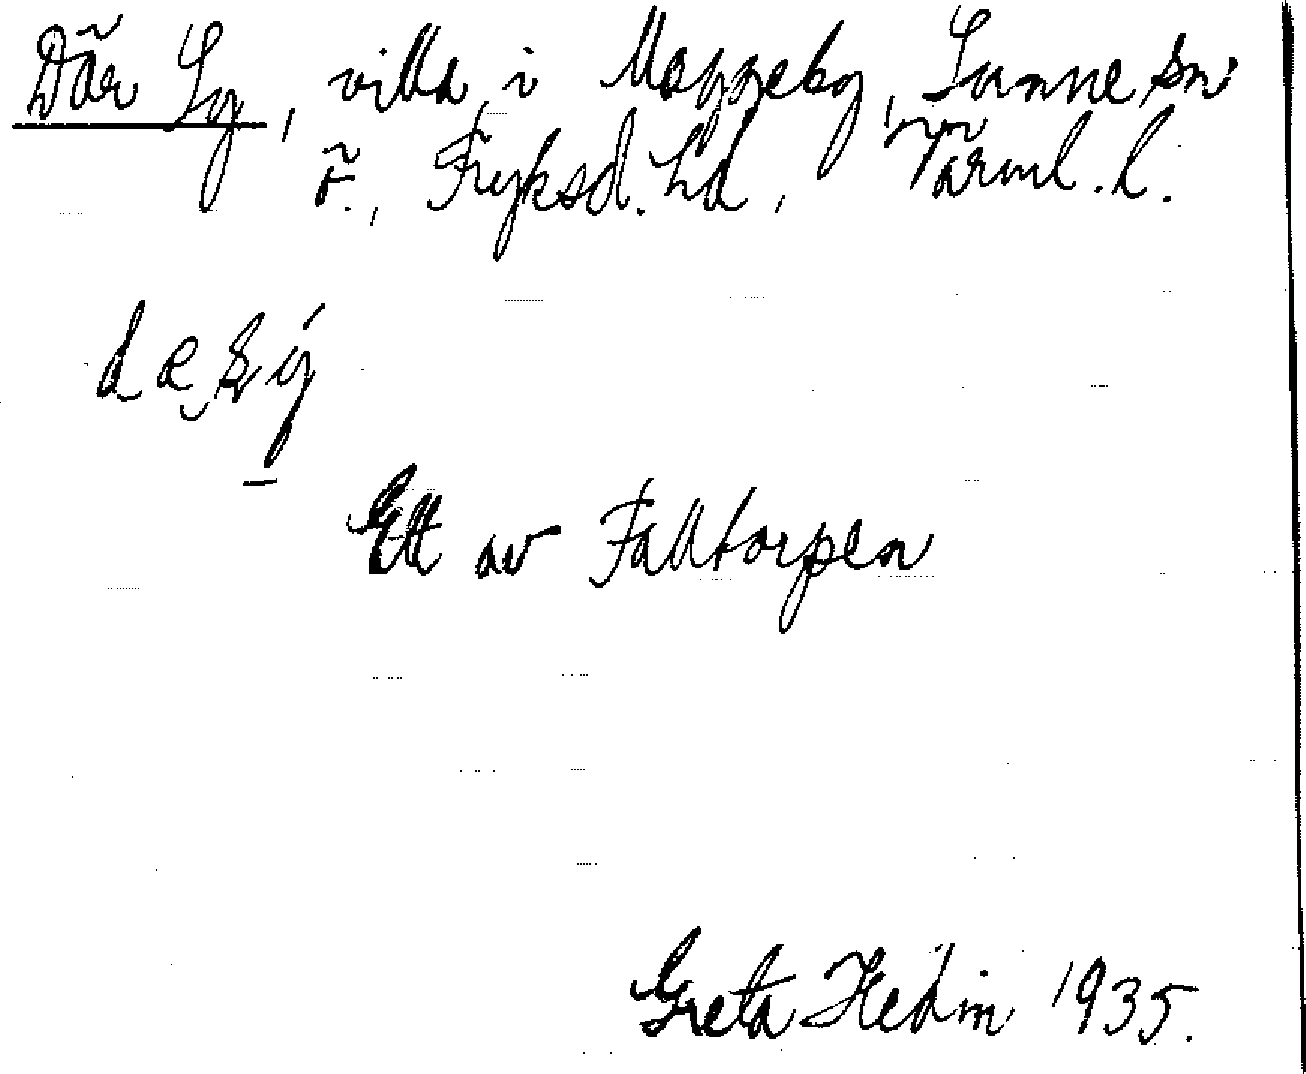 Där Sy, villa i Maggeby, Sunne sn
Ö., Fryksd. hd, Värml. l.
Ett av Falltorpen
Greta Hedin 1935.